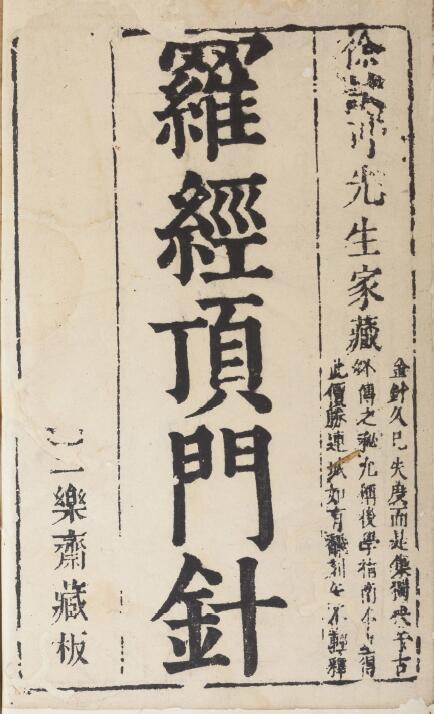 徐試可先生家藏
金針久已失度而是集獨千古
不傳之秘尤稱後學指南本得
此價勝連城如有翻刻必不輕釋
羅經頂門針
三樂齋藏板